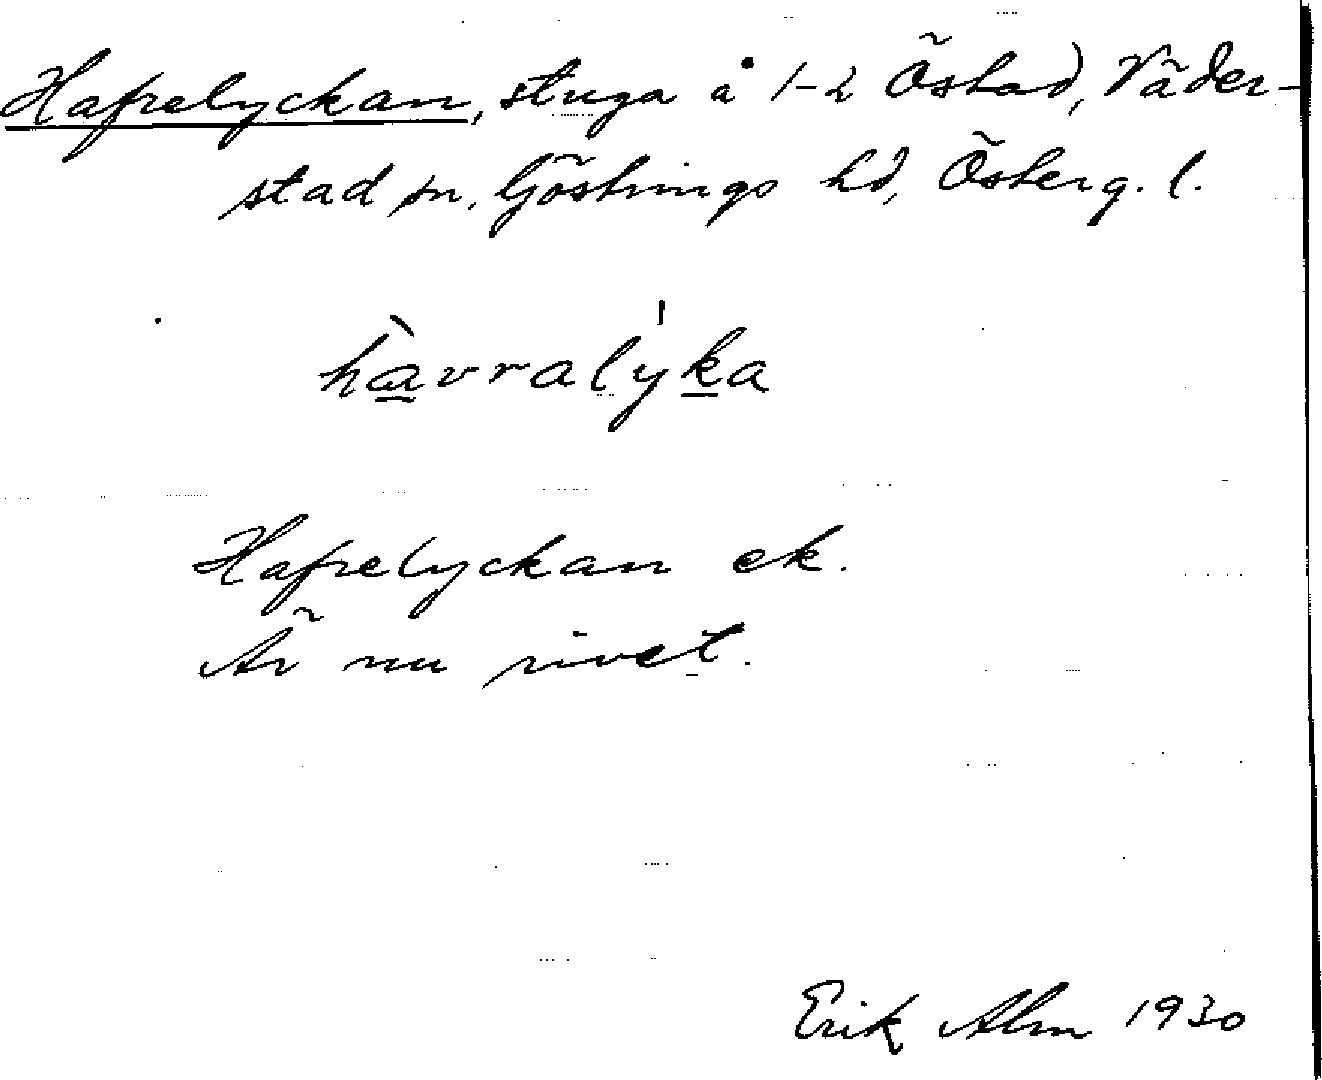 Hafrelyckan, stuga å 1-2 Östad, Väder-
stad sn, Göstrings hd, Österg. l.
hàvralyka
Hafrelyckan ek.
Är nu rivet.
Erik Alm 1930